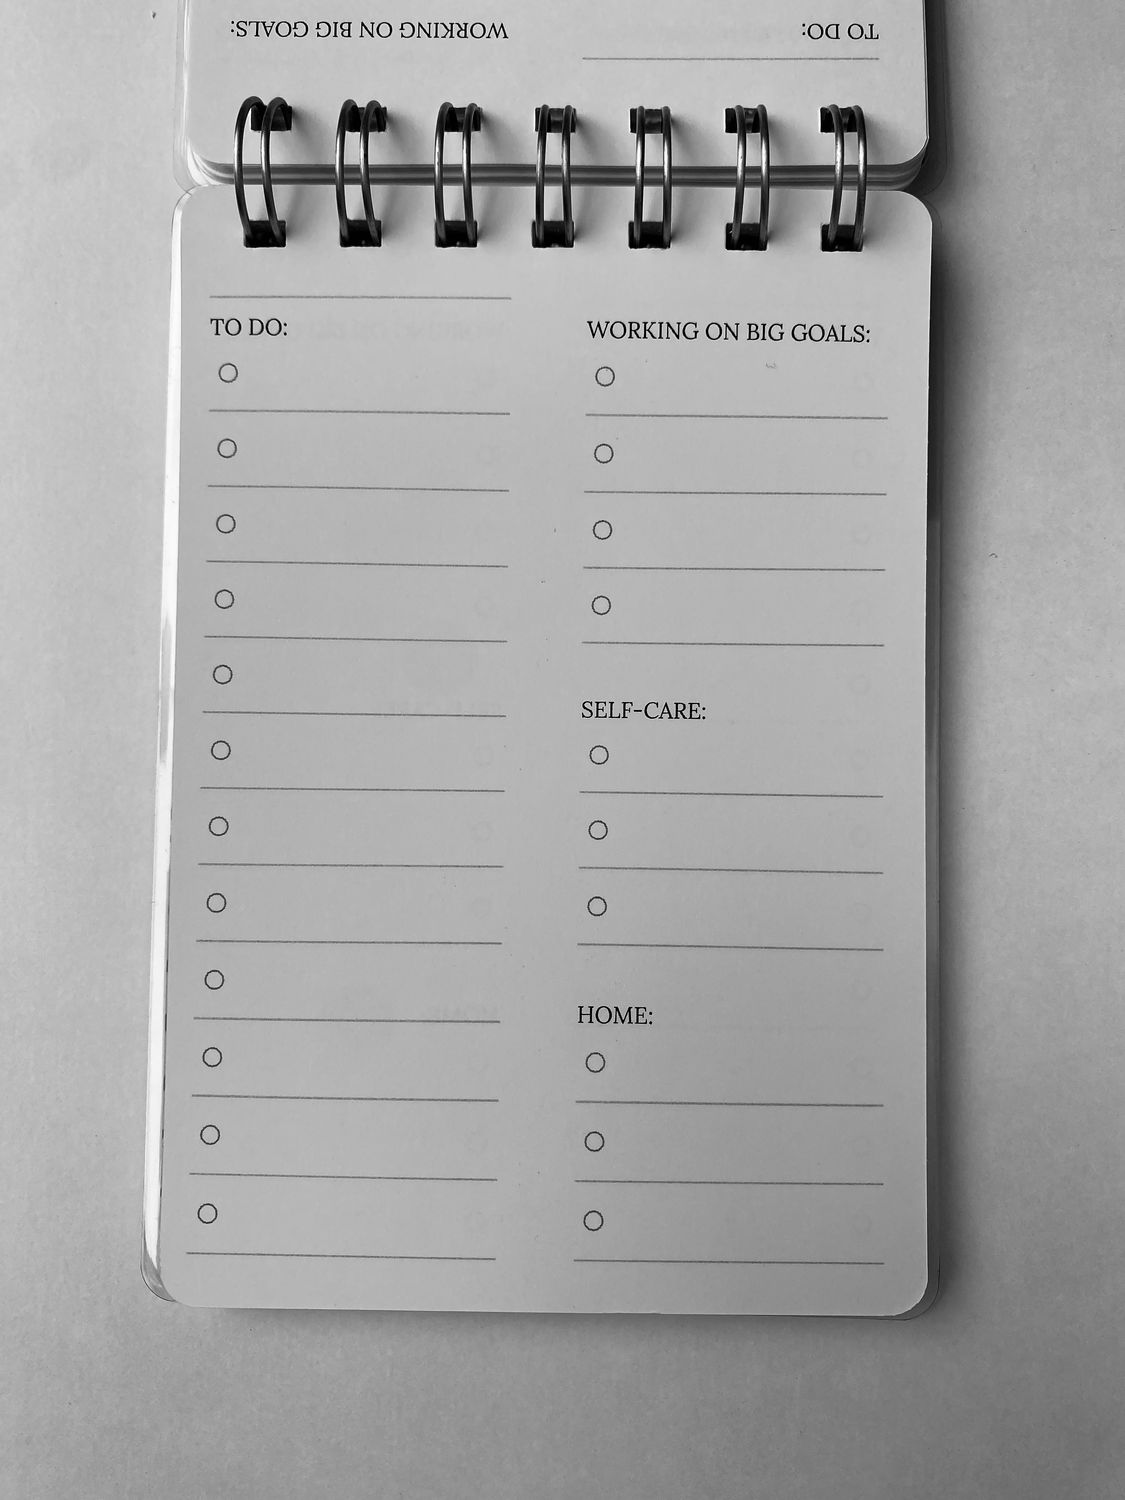 WORKING ON BIG GOALS:
TO DO:
TO DO:
WORKING ON BIG GOALS:
SELF-CARE:
HOME: